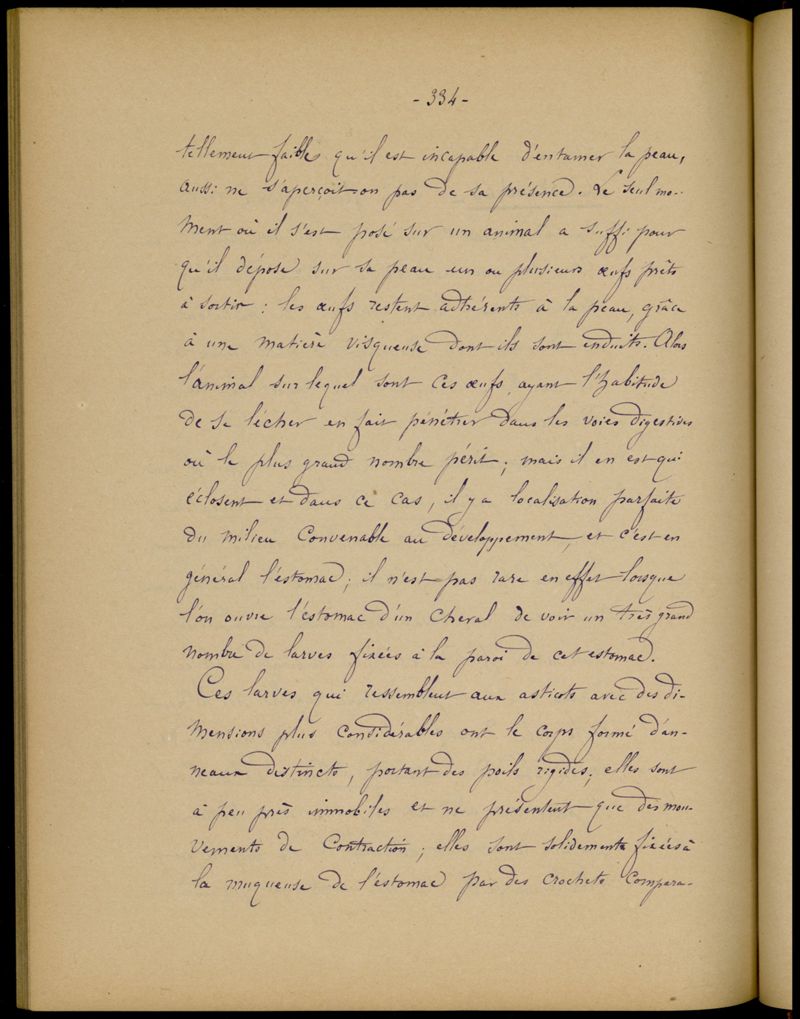 - 334 -
tellement faible qu'il est incapable d'entamer la peau,
aussi ne s'aperçoit-on pas de sa présence. Le seul mo-
ment où il s'est posé sur un animal a suffi pour
qu'il dépose sur sa peau un ou plusieurs œufs prêts
à sortir : les œufs restent adhérents à la peau, grâce
à une matière visqueuse dont ils sont enduits. Alors
l'animal sur lequel sont ces œufs, ayant l'habitude
de se lècher en fait pénétrer dans les voies digestives
où le plus grand nombre périt ; mais il en est qui
éclosent et dans ce cas, il y a localisation parfaite
du milieu convenable au développement, et c'est en
général l'estomac ; il n'est pas rare en effet lorsque
l'on ouvre l'estomac d'un cheval de voir un très grand
nombre de larves fixées à la paroi de cet estomac.
Ces larves qui ressemblent aux asticots avec des di-
mensions plus considérables ont le corps formé d'an-
neaux distincts, portant des poils rigides ; elles sont
à peu près immobiles et ne présentent que des mou-
vements de contraction ; elles sont solidement fixées à
la muqueuse de l'estomac par des crochets compara-